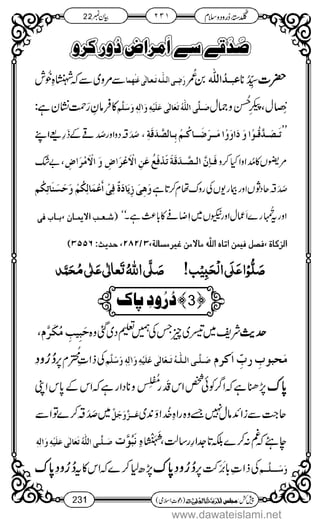 بیان نمبر 22 ۲۳۱ گلدستۂ درود و سلام
صَدَقے سے اَمراض دُور کرو
حضرت سیِّدُنا عبدُ اللّٰہ بن عمر رَضِیَ اللّٰہُ تَعَالٰی عَنْہُمَا سے مروی ہے کہ شہنشاہِ خوش
خِصال، پیکرِ حُسن و جمال صَلَّی اللّٰہُ تَعَالٰی عَلَیْہِ وَاٰلِہٖ وَسَلَّم کا فرمانِ رحمت نشان ہے:
’’تَصَدَّقُوْا وَدَاوُوْا مَرْضَاکُمْ بِالصَّدَقَۃِ، صدقہ دو اور صدقے کے ذریعے اپنے
مریضوں کا مُداوا کیا کرو فَاِنَّ الصَّدَقَۃَ تَدْفَعُ عَنِ الْاَعْرَاضِ وَ الْاَمْرَاضِ، بے شک
صدقہ حادثوں اور بیماریوں کی روک تھام کرتا ہے وَھِیَ زِیَادَۃٌ فِیْ اَعْمَالِکُمْ وَحَسَنَاتِکُمْ
اور یہ تمہارے اعمال اور نیکیوں میں اضافے کا باعث ہے۔‘‘ (شعب الایمان ،باب فی
الزکاۃ ،فصل فیمن اتاہ اللّٰہ مالامن غیرمسالۃ،۳/ ۲۸۲، حدیث: ۳۵۵۶)
صَلُّوْا عَلَی الْحَبِیْب! صَلَّی اللّٰہُ تَعَالٰی عَلٰی مُحَمَّد
﴿3﴾ دُرُودِ پاک
حدیث شریف میں تیسری چیز جس کی ہمیں تعلیم دی گئی وہ حبیبِ مُکَرَّم،
محبوبِ ربِّ اکرم صَلَّی اللّٰہُ تَعَالٰی عَلَیْہِ وَاٰلِہٖ وَسَلَّم کی ذاتِ محترم پر دُرُودِ
پاک پڑھنا ہے کہ اگر کوئی شخص اس قدر مُفلِس و نادار ہے کہ اس کے پاس اپنی
حاجت سے زائد مال نہیں جسے وہ راہِ خُداوندی عَزَّوَجَلَّ میں صدقہ کرے تو اسے
چاہئے کہ غم نہ کرے بلکہ تاجدارِ رسالت، شہنشاہِ نُبُوَّت صَلَّی اللّٰہُ تَعَالٰی عَلَیْہِ وَاٰلِہٖ
وَسَلَّم کی ذاتِ بابرکت پر دُرُودِ پاک پڑھ لیا کرے کہ اس کا یہ دُرُودِ پاک
231 پیش کش: مجلس اَلْمَدِیْنَۃُ الْعِلْمِیَّۃ (دعوتِ اسلامی)
www.dawateislami.net